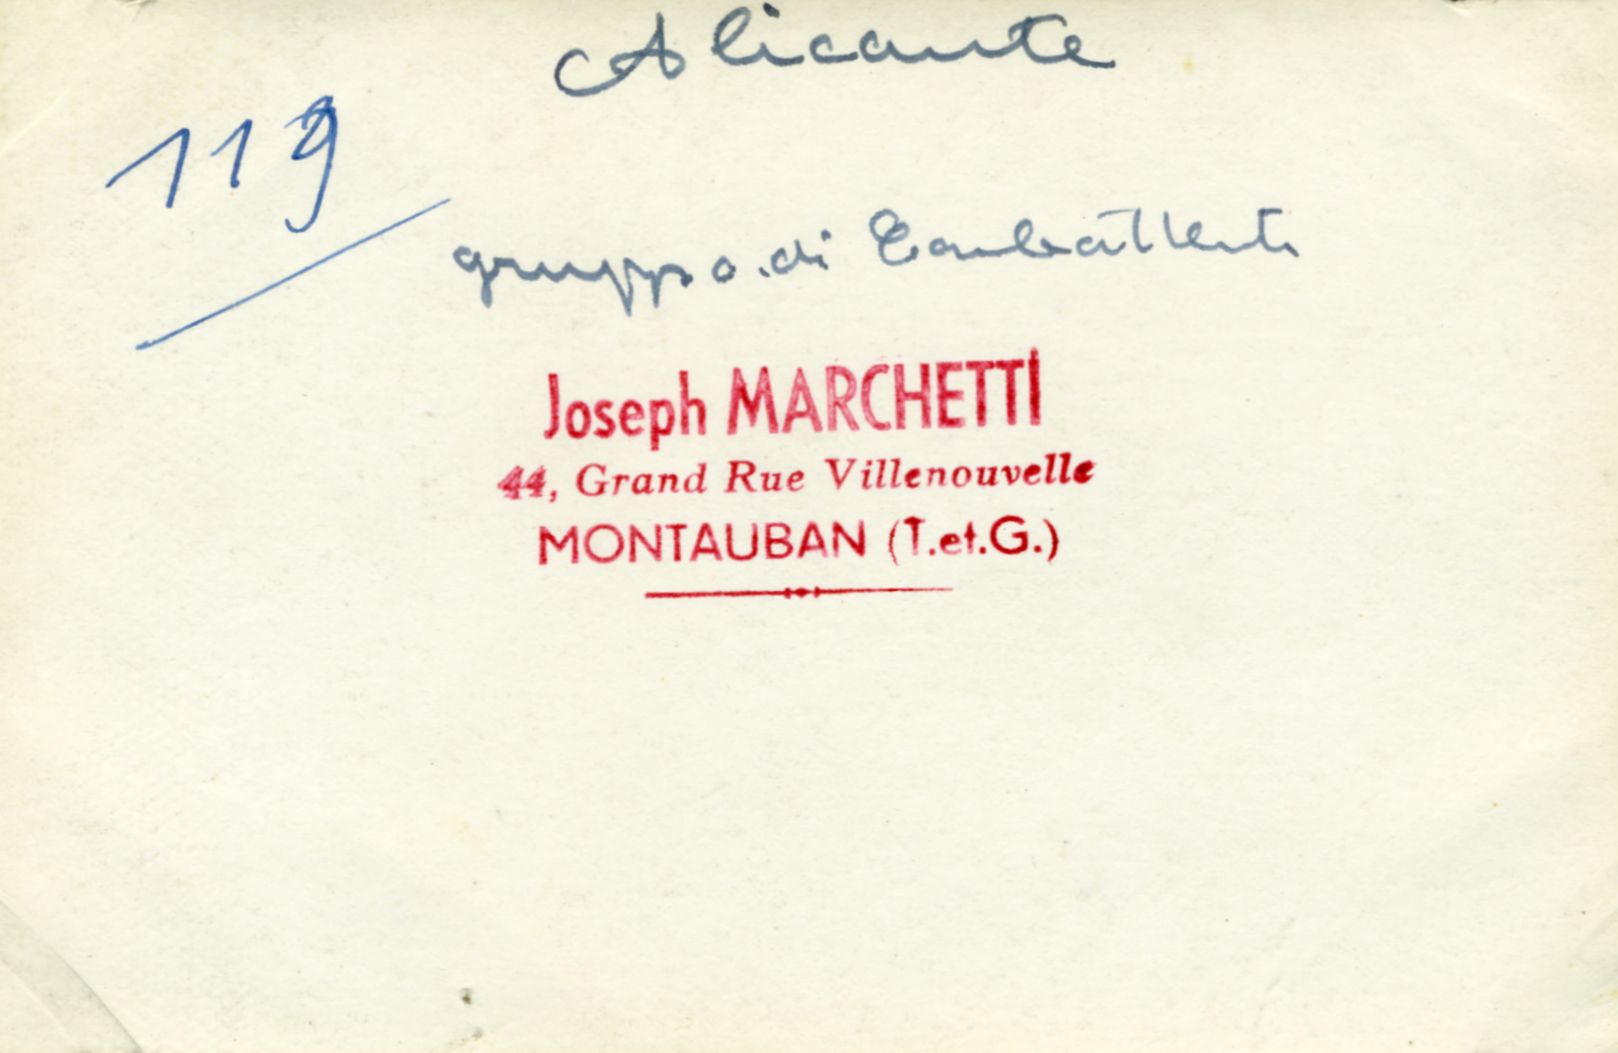 Alicante
119
gruppo di Combattenti
Joseph MARCHETTI
44, Grand Rue Villenouvelle
MONTAUBAN (T.et.G.)